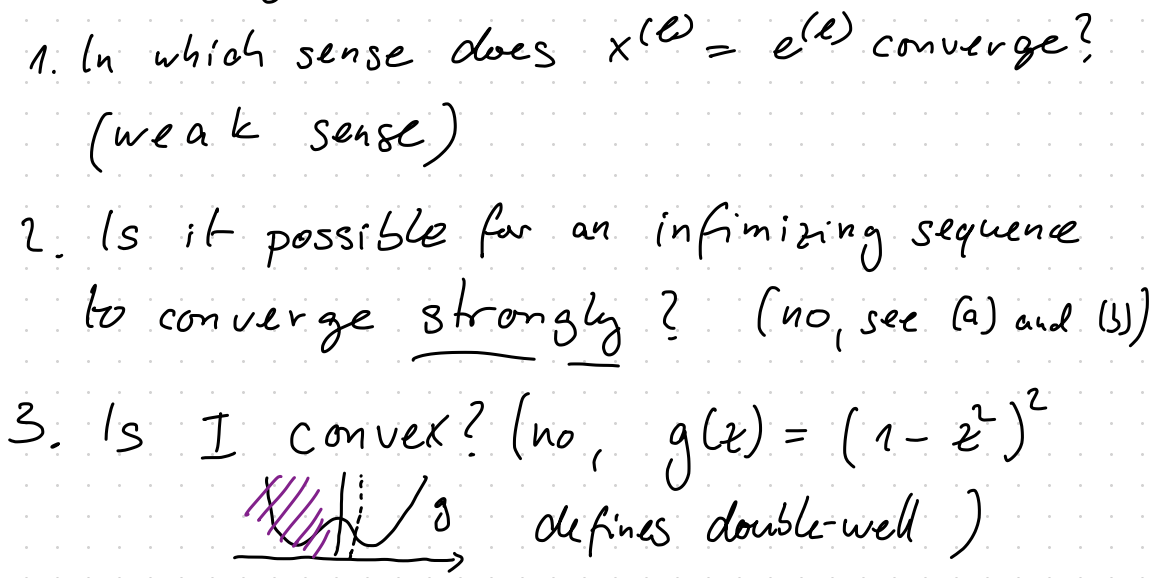 1. In which sense does x^(l) = e^(l) converge?
(weak sense)
2. Is it possible for an infimizing sequence
to converge strongly? (no, see (a) and (b))
3. Is I convex? (no, g(z) = (1 - z²)²
g defines double-well)